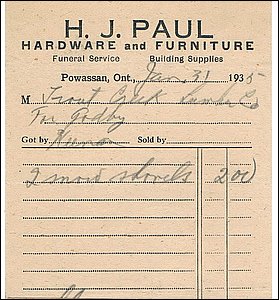 H. J. PAUL
HARDWARE and FURNITURE
Funeral Service Building Supplies
Powassan, Ont., Jan. 31 1935
M Trout Creek
For Godby
Got by Sold by
2 snow shovels 2 00